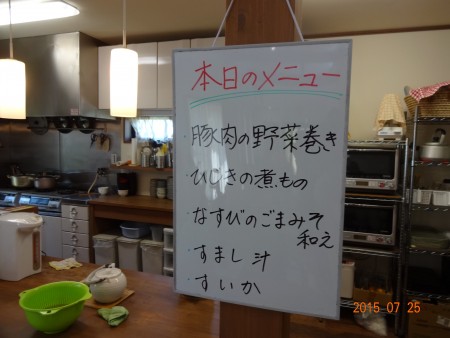 本日のメニュー
・豚肉の野菜巻き
・ひじきの煮もの
・なすびのごまみそ
和え
・すまし汁
・すいか
2015 07 25